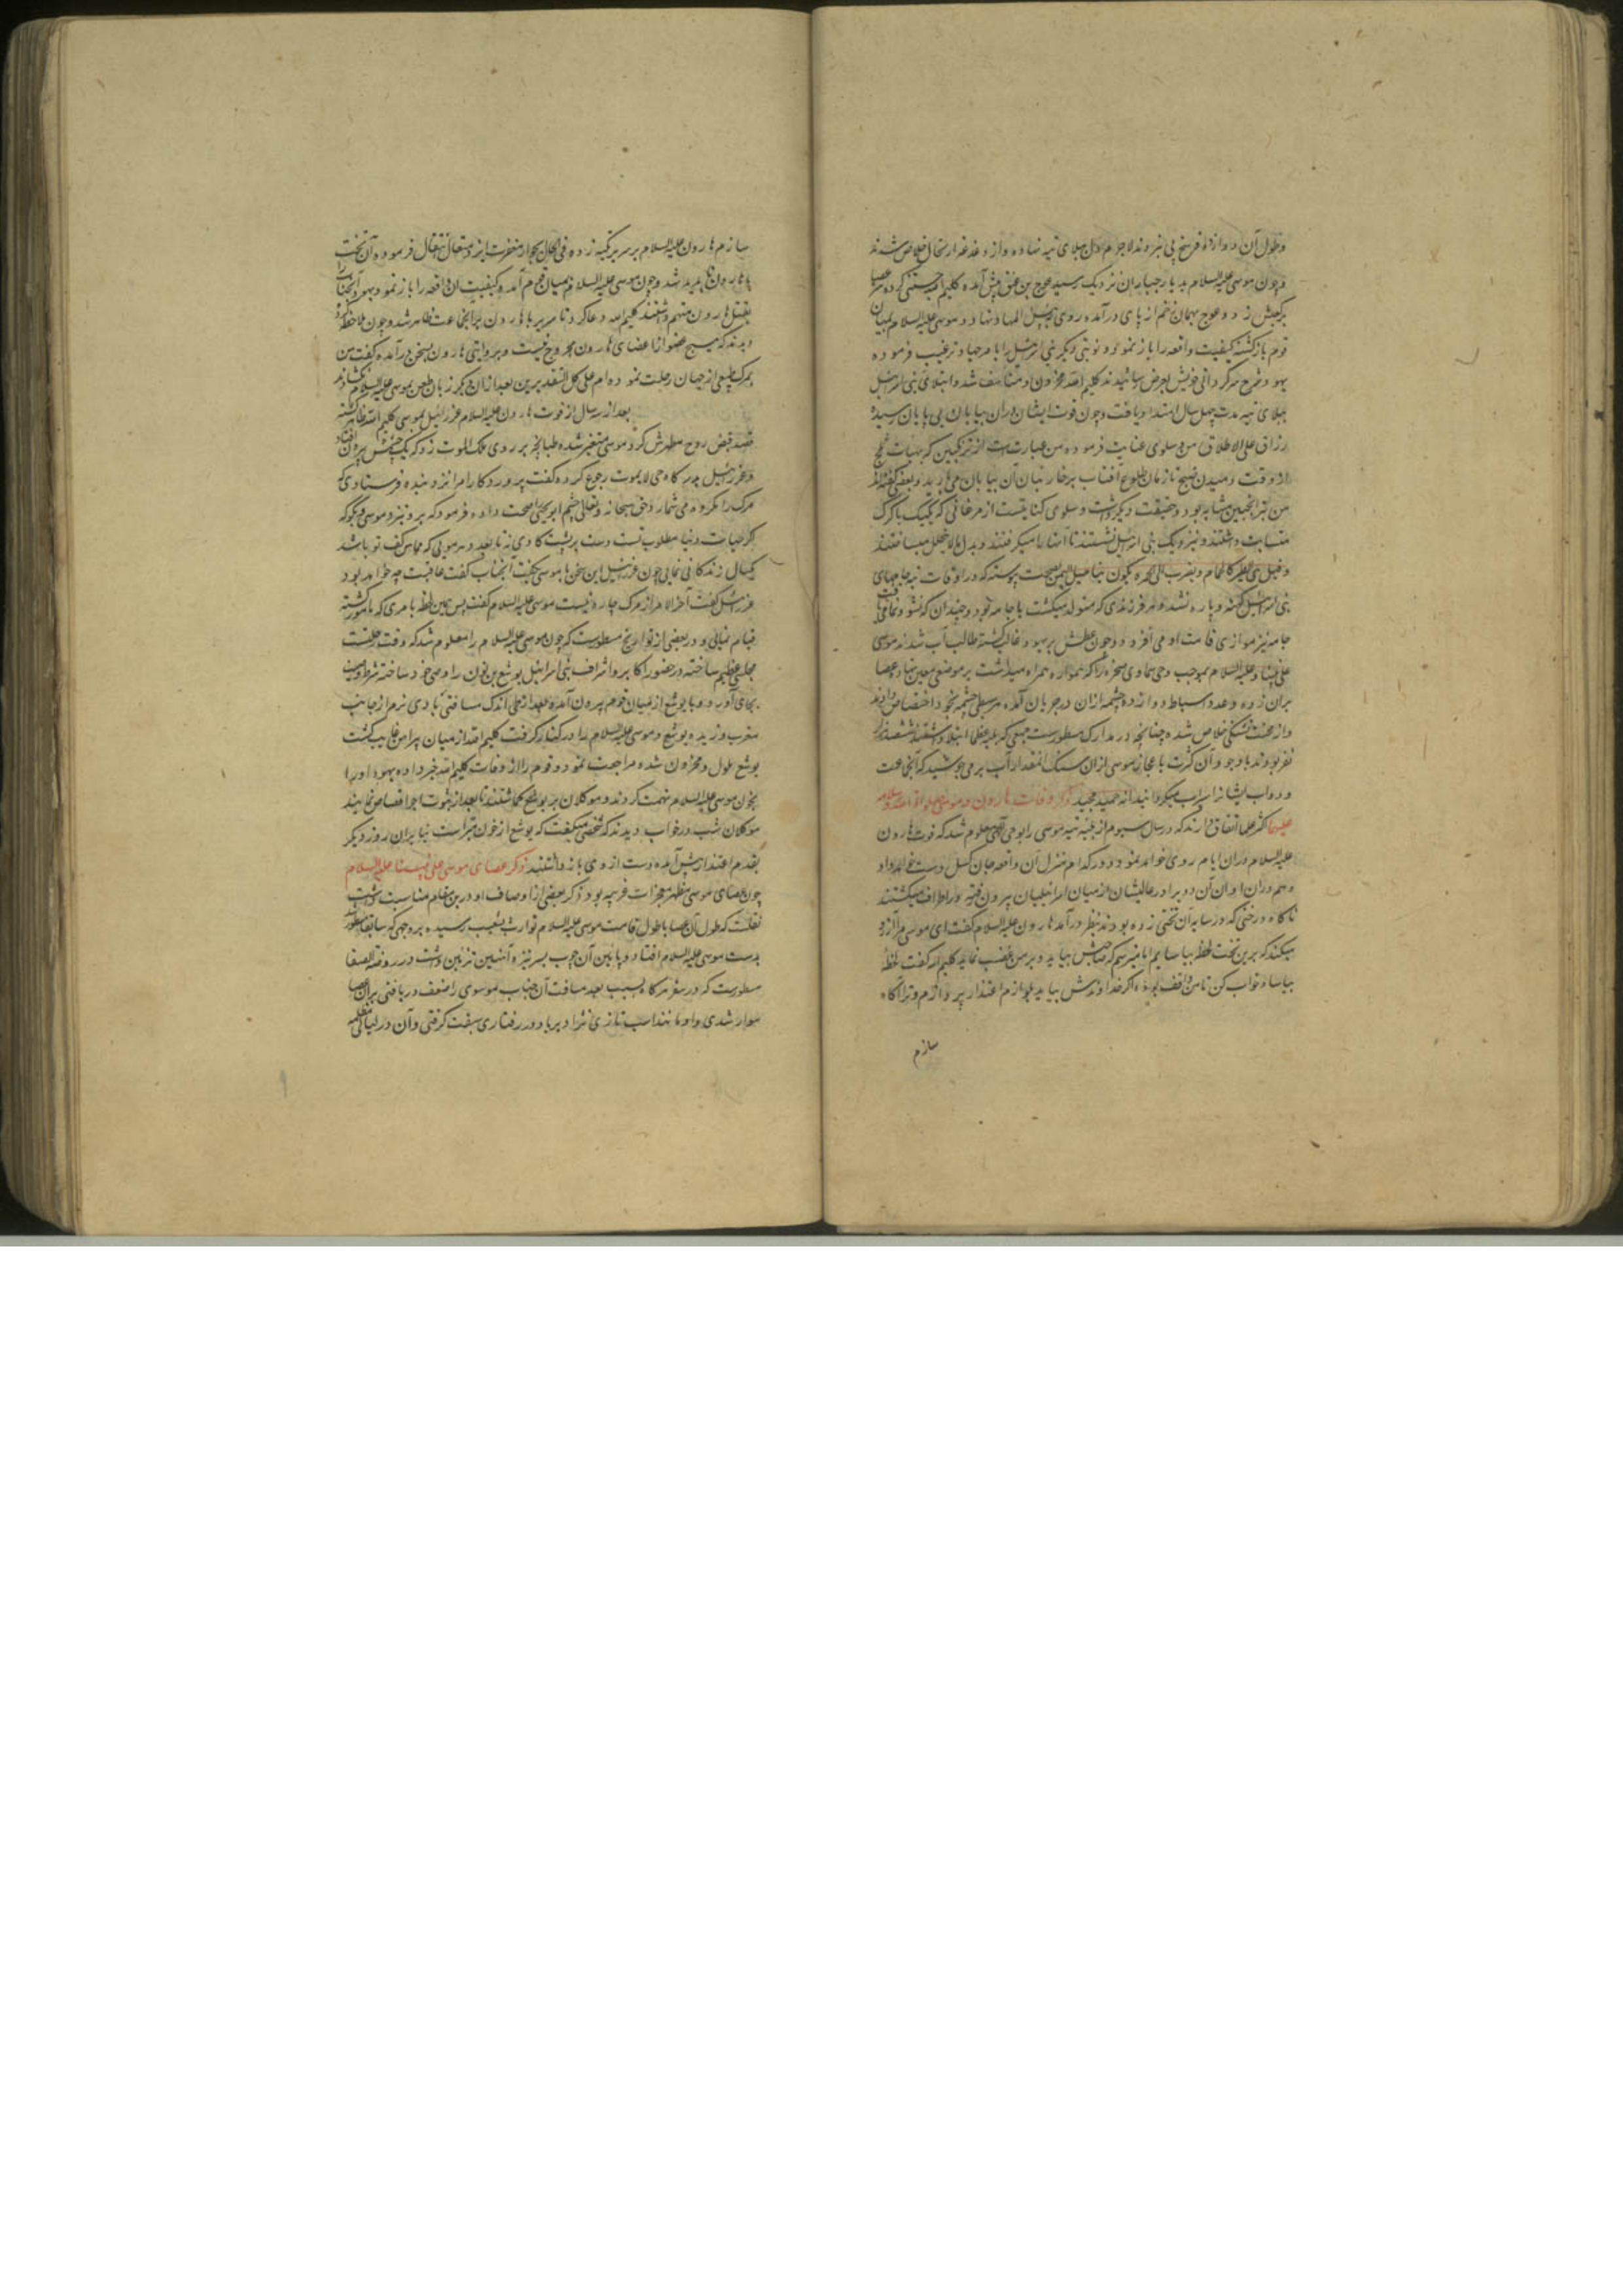 وطول آن دوازده فرسخ پی نبردند لاجرم دل بر بلای تیه نهاده و از دغدغه ارتحال خلاص شدند
و چون موسی علیه السلام بدیار جباران نزدیک رسید عوج بن عنق پیش آمده کلیم الله جستی کرده سر عصا
بر کعبش زد و عوج بهمان زخم از پای درآمده روی به بئس المهاد نهاد و موسی علیه السلام بمیان
قوم بازگشته کیفیت واقعه را باز نمود و نوبتی دیگر بنی اسرائیل را بامر جهاد ترغیب فرموده
یهود شرح سرگردانی خویش بعرض رسانیدند کلیم الله محزون و متاسف شد و ابتلای بنی اسرائیل
ببلای تیه مدت چهل سال امتداد یافت و چون قوت ایشان در آن بیابان بی پایان رسید
رزاق علی الاطلاق من و سلوی عنایت فرمود و من عبارتست از ترنجبین که
از وقت دمیدن صبح تا زمان طلوع آفتاب بر خارستان آن بیابان می بارید و بعضی گفته اند
من بترنجبین مشابه بود و حقیقت دیگر داشت و سلوی کنایتست از مرغانی که بکبک یا کرک
مشابهت داشتند و نزدیک بنی اسرائیل نشستند تا آنها را میگرفتند و بدل مایتحلل میساختند
و قیل هی الطیر کالحمام و یضرب الی الحمره بصحت پیوسته که در اوقات تیه جامهای
بنی اسرائیل کهنه و پاره نشد و هر فرزندی که متولد میگشت با جامه بود و چندان که نشو و نما می یافت
جامه نیز موازی قامت او می افزود و چون عطش بر یهود غالب گشته طالب آب شدند موسی
علی نبینا و علیه السلام بموجب وحی سماوی صخره را که همواره همراه میداشت بر موضعی معین نهاد و عصا
بران زده و عدد اسباط دوازده چشمه ازان در جریان آمده هر سبطی چشمه بخود اختصاص دادند
و از محنت تشنگی خلاص شده چنانچه در مدارک مسطورست جمعی که ببلیه عظما ابتلا داشتند ششصد هزار
نفر بودند باوجود آن کثرت باعجاز موسی ازان سنگ آنمقدار آب بر می جوشید که آن جماعت
و دواب ایشانرا سیراب میگردانید انه حمید مجید ذکر وفات هارون و موسی صلوات الله و سلامه
علیهما اکثر علما اتفاق دارند که در سال سیوم از بلیه تیه موسی را بوحی الهی معلوم شد که فوت هارون
علیه السلام دران ایام روی خواهد نمود و در کدام منزل آن واقعه جان گسل دست خواهد داد
و هم دران اوان آن دو برادر عالیشان از میان اسرائیلیان بیرون رفته در اطراف میگشتند
ناگاه درختی که در سایه آن تختی زده بودند بنظر درآمد هارون علیه السلام گفت ای موسی مرا آرزو
میکند که برین تخت لحظه بیاسایم اما میترسم که صاحبش بیاید و بر من غضب نماید کلیم الله گفت لحظه
بیاسا و خواب کن تا من واقف بوده اگر خداوندش بیاید بلوازم اعتذار پردازم و ترا آگاه
سازم
سازم هارون علیه السلام بر سریر تکیه زده فی الحال بجوار مغفرت ایزد متعال انتقال فرموده آن تخت
با هارون ناپدید شد و چون موسی علیه السلام بمیان قوم آمده و کیفیت آن واقعه را باز نمود یهود آنجناب را
بقتل هارون متهم داشتند کلیم الله دعا کرد تا سریر با هارون بر آن جماعت ظاهر شد و چون ملاحظه کردند
دیدند که هیچ عضو از اعضای هارون مجروح نیست و بروایتی هارون بسخن درآمده گفت من
بمرگ طبیعی از جهان رحلت نموده ام علی کلا التقدیرین بعد ازان دیگر زبان طعن بموسی علیه السلام نگشادند
بعد از سه سال از فوت هارون علیه السلام عزرائیل بموسی کلیم الله ظاهر گشته
قصد قبض روح مطهرش کرد و موسی متغیر شده طپانچه بر روی ملک الموت زد که یک چشمش بیرون افتاد
و عزرائیل بدرگاه حی لایموت رجوع کرده گفت پروردگارا مرا نزد بنده فرستادی که
مرگ را مکروه می شمارد حق سبحانه و تعالی چشم ابو یحیی را صحت داده فرمود که برو نزد موسی و بگو که
اگر حیات دنیا مطلوب تست دست بر پشت گاوی نه تا بعدد هر مویی که مماس کف تو باشد
یکسال زندگانی نمایی چون عزرائیل این سخن با موسی بگفت آنجناب گفت عاقبت چه خواهد بود
عزرائیل گفت آخر الامر از مرگ چاره نیست موسی علیه السلام گفت پس همین لحظه بامری که مامور گشته
قیام نمایی و در بعضی از تواریخ مسطورست که چون موسی علیه السلام را معلوم شد که وقت رحلت است
مجلسی عظیم ساخته در حضور اکابر و اشراف بنی اسرائیل یوشع بن نون را وصی خود ساخته شرط وصیت
بجای آورد و با یوشع از میان قوم بیرون آمده بعد از طی اندک مسافتی بادی نرم از جانب
مغرب وزیده یوشع موسی علیه السلام را در کنار گرفت کلیم الله از میان پیراهن غایب گشت
یوشع ملول و محزون شده مراجعت نمود و قوم را از وفات کلیم الله خبر داده یهود او را
بخون موسی علیه السلام تهمت کردند و موکلان بر یوشع گماشتند تا بعد از ثبوت اجرا قصاص نمایند
موکلان شب در خواب دیدند که شخصی میگفت که یوشع از خون مبراست بنابران روز دیگر
بقدم اعتذار پیش آمده دست از وی باز داشتند ذکر عصای موسی علی نبینا و علیه السلام
چون عصای موسی مظهر معجزات غریبه بود ذکر بعضی از اوصاف او درین مقام مناسبت داشت
نقلست که طول آن عصا با طول قامت موسی علیه السلام بشعیب رسیده بروجهی که سابقا مسطور شد
بدست موسی علیه السلام افتاد و پایین آن چوب بسر نیزه آهنین تزیین داشت در روضة الصفا
مسطورست که در سفر هرگاه بسبب بعد مسافت آن جناب موسوی را ضعف دریافتی بران عصا
سوار شدی و او مانند اسب تازی نژاد بر باد در رفتاری سبقت گرفتی و آن در لیالی مظلمه